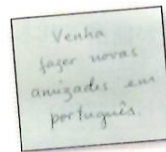 Venha
fazer novas
amizades em
português.